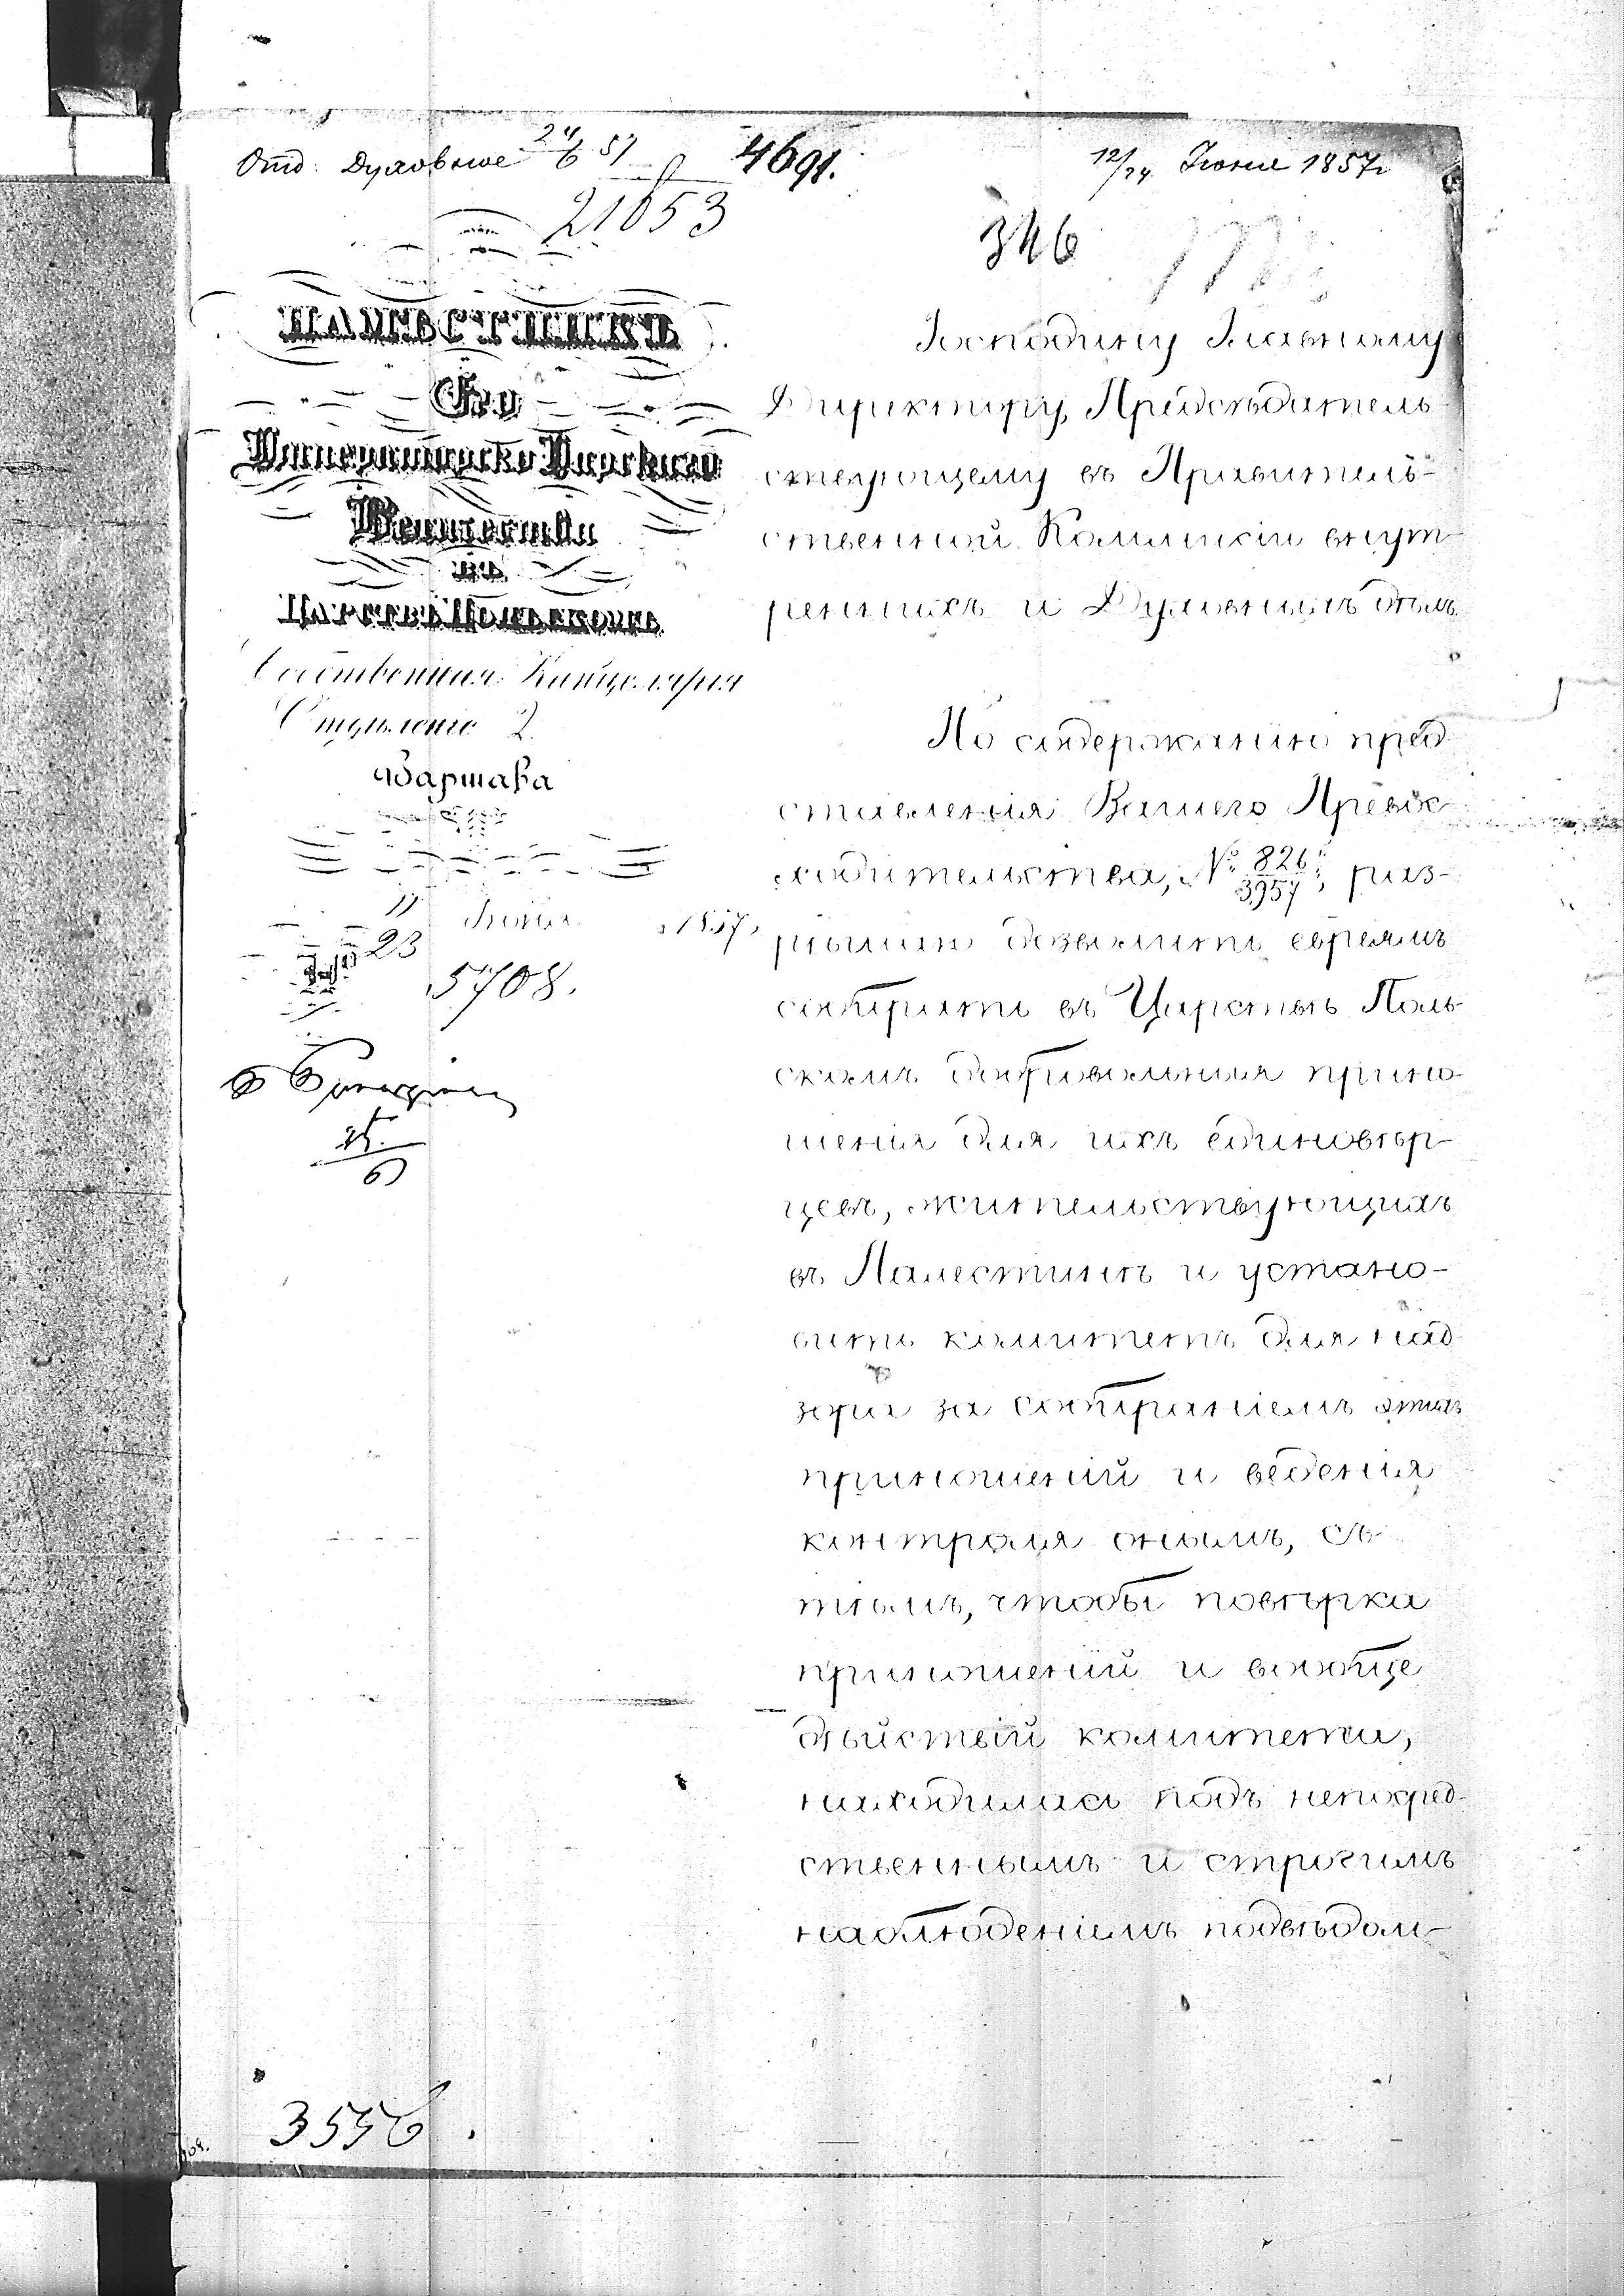 Отд: Духовное 24/6 57
4691.
12/24 Июня 1857 г
21653
346
НАМѢСТНИКЪ
Его
Императорско Царскаго
Величества
ВЪ
ЦАРСТВѢ ПОЛЬСКОМЪ.
Собственная Канцелярія
Отдѣленіе 2.
Варшава
11/23 Июня 1857.
№ 5708.
25/6
Господину Главному
Директору, Предсѣдатель-
ствующему въ Правитель-
ственной Коммисіи внут-
реннихъ и Духовныхъ дѣлъ.
По содержанію пред-
ставленія Вашего Превос-
ходительства, № 826/3957, раз-
рѣшаю дозволить евреямъ
собирать въ Царствѣ Поль-
скомъ добровольныя прино-
шенія для ихъ единовѣр-
цевъ, жительствующихъ
въ Палестинѣ и устано-
вить комитетъ для над-
зора за собираніемъ этихъ
приношеній и веденія
контроля онымъ, съ
тѣмъ, чтобы повѣрка
приношеній и вообще
дѣйствій комитета,
находилась подъ непосред-
ственнымъ и строгимъ
наблюденіемъ подвѣдом-
3556.